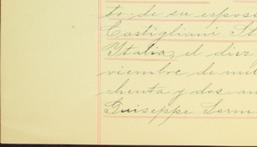 to de su esposo
Castigliani St
Italia, el diez
viembre de mil
chenta y dos an
Guiseppe Serm